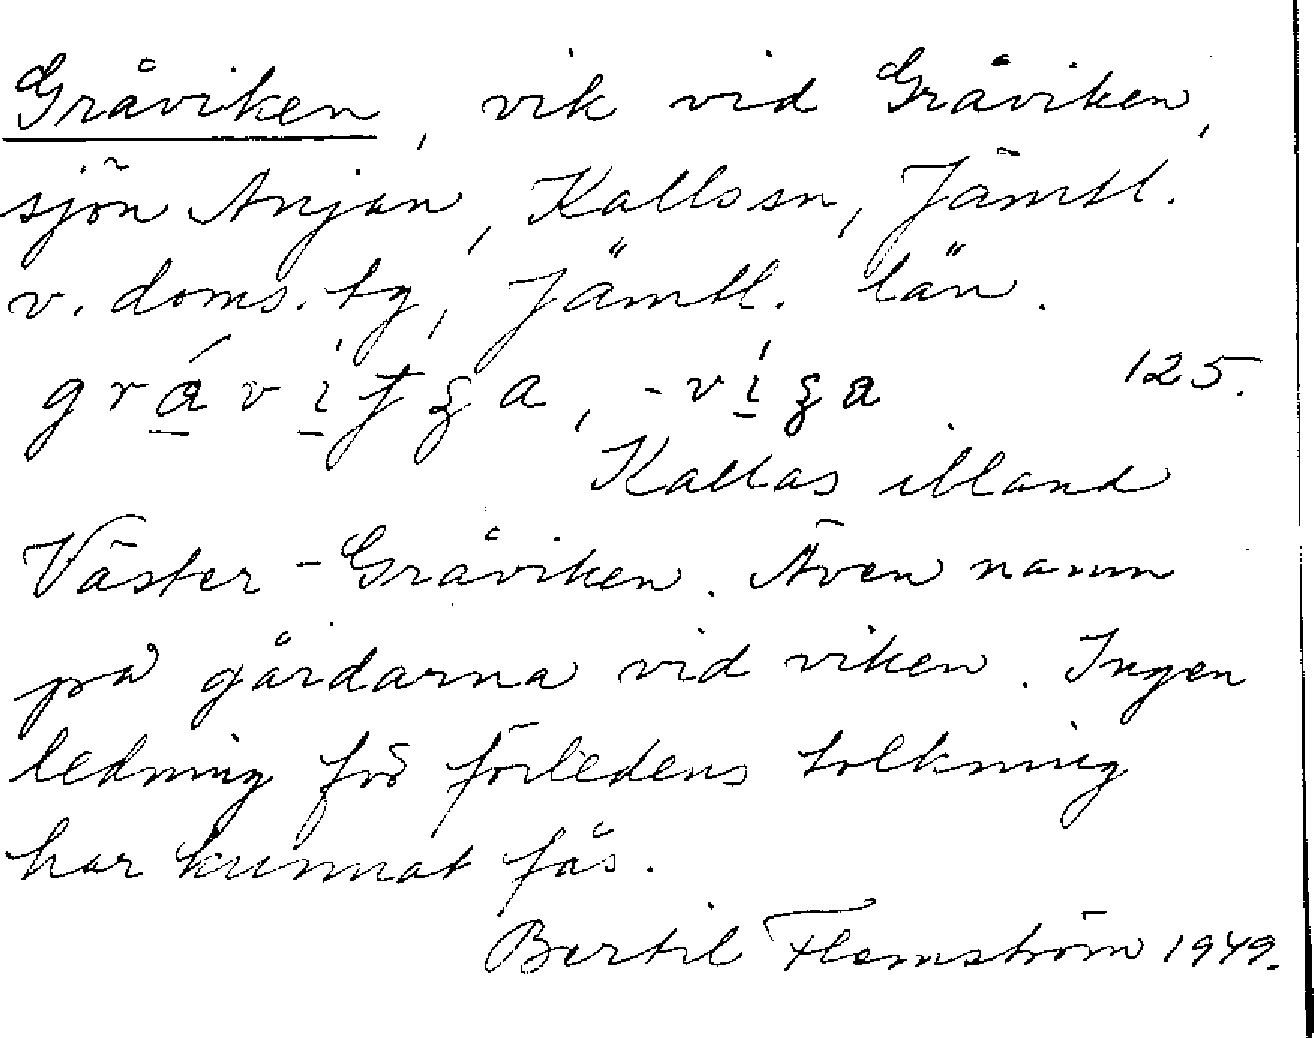 Gråviken, vik vid Gråviken,
sjön Anjan, Kalls sn, Jämtl.
v. doms. tg, Jämtl. län.
125.
Kallas ibland
Väster-Gråviken. Även namn
på gårdarna vid viken. Ingen
ledning för förledens tolkning
har kunnat fås.
Bertil Flemström 1949.